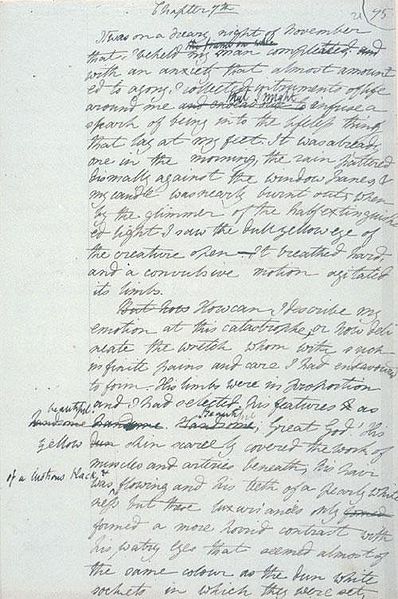 Chapter 7th
21 95
It was on a dreary night of November
the frame on whic
that I beheld my man completed, and
with an anxiety that almost amount
ed to agony, I collected instruments of life
that I might
around me and infuse a
spark of being into the lifeless thing
that lay at my feet. It was already
one in the morning, the rain pattered
dismally against the window panes &
my candle was nearly burnt out, when
by the glimmer of the half extinguish
ed light I saw the dull yellow eye of
the creature open — It breathed hard,
and a convulsive motion agitated
its limbs.
But how How can I describe my
emotion at this catastrophe, or how deli
neate the wretch whom with such
infinite pains and care I had endeavoured
to form. His limbs were in proportion
and I had selected his features as
beautiful
handsome handsome. Handsome; Great God! His
Beautiful
yellow dun skin scarcely covered the work of
muscles and arteries beneath; his hair
of a lustrous black, &
was flowing and his teeth of a pearly white
ness but these luxuriances only formed
formed a more horrid contrast with
his watry eyes that seemed almost of
the same colour as the dun white
sockets in which they were set,